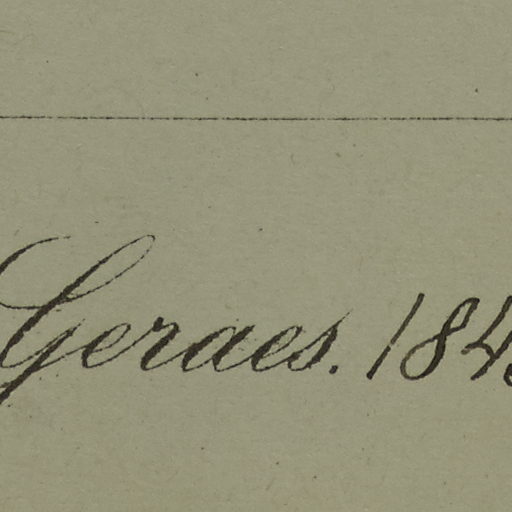 Geraes. 184